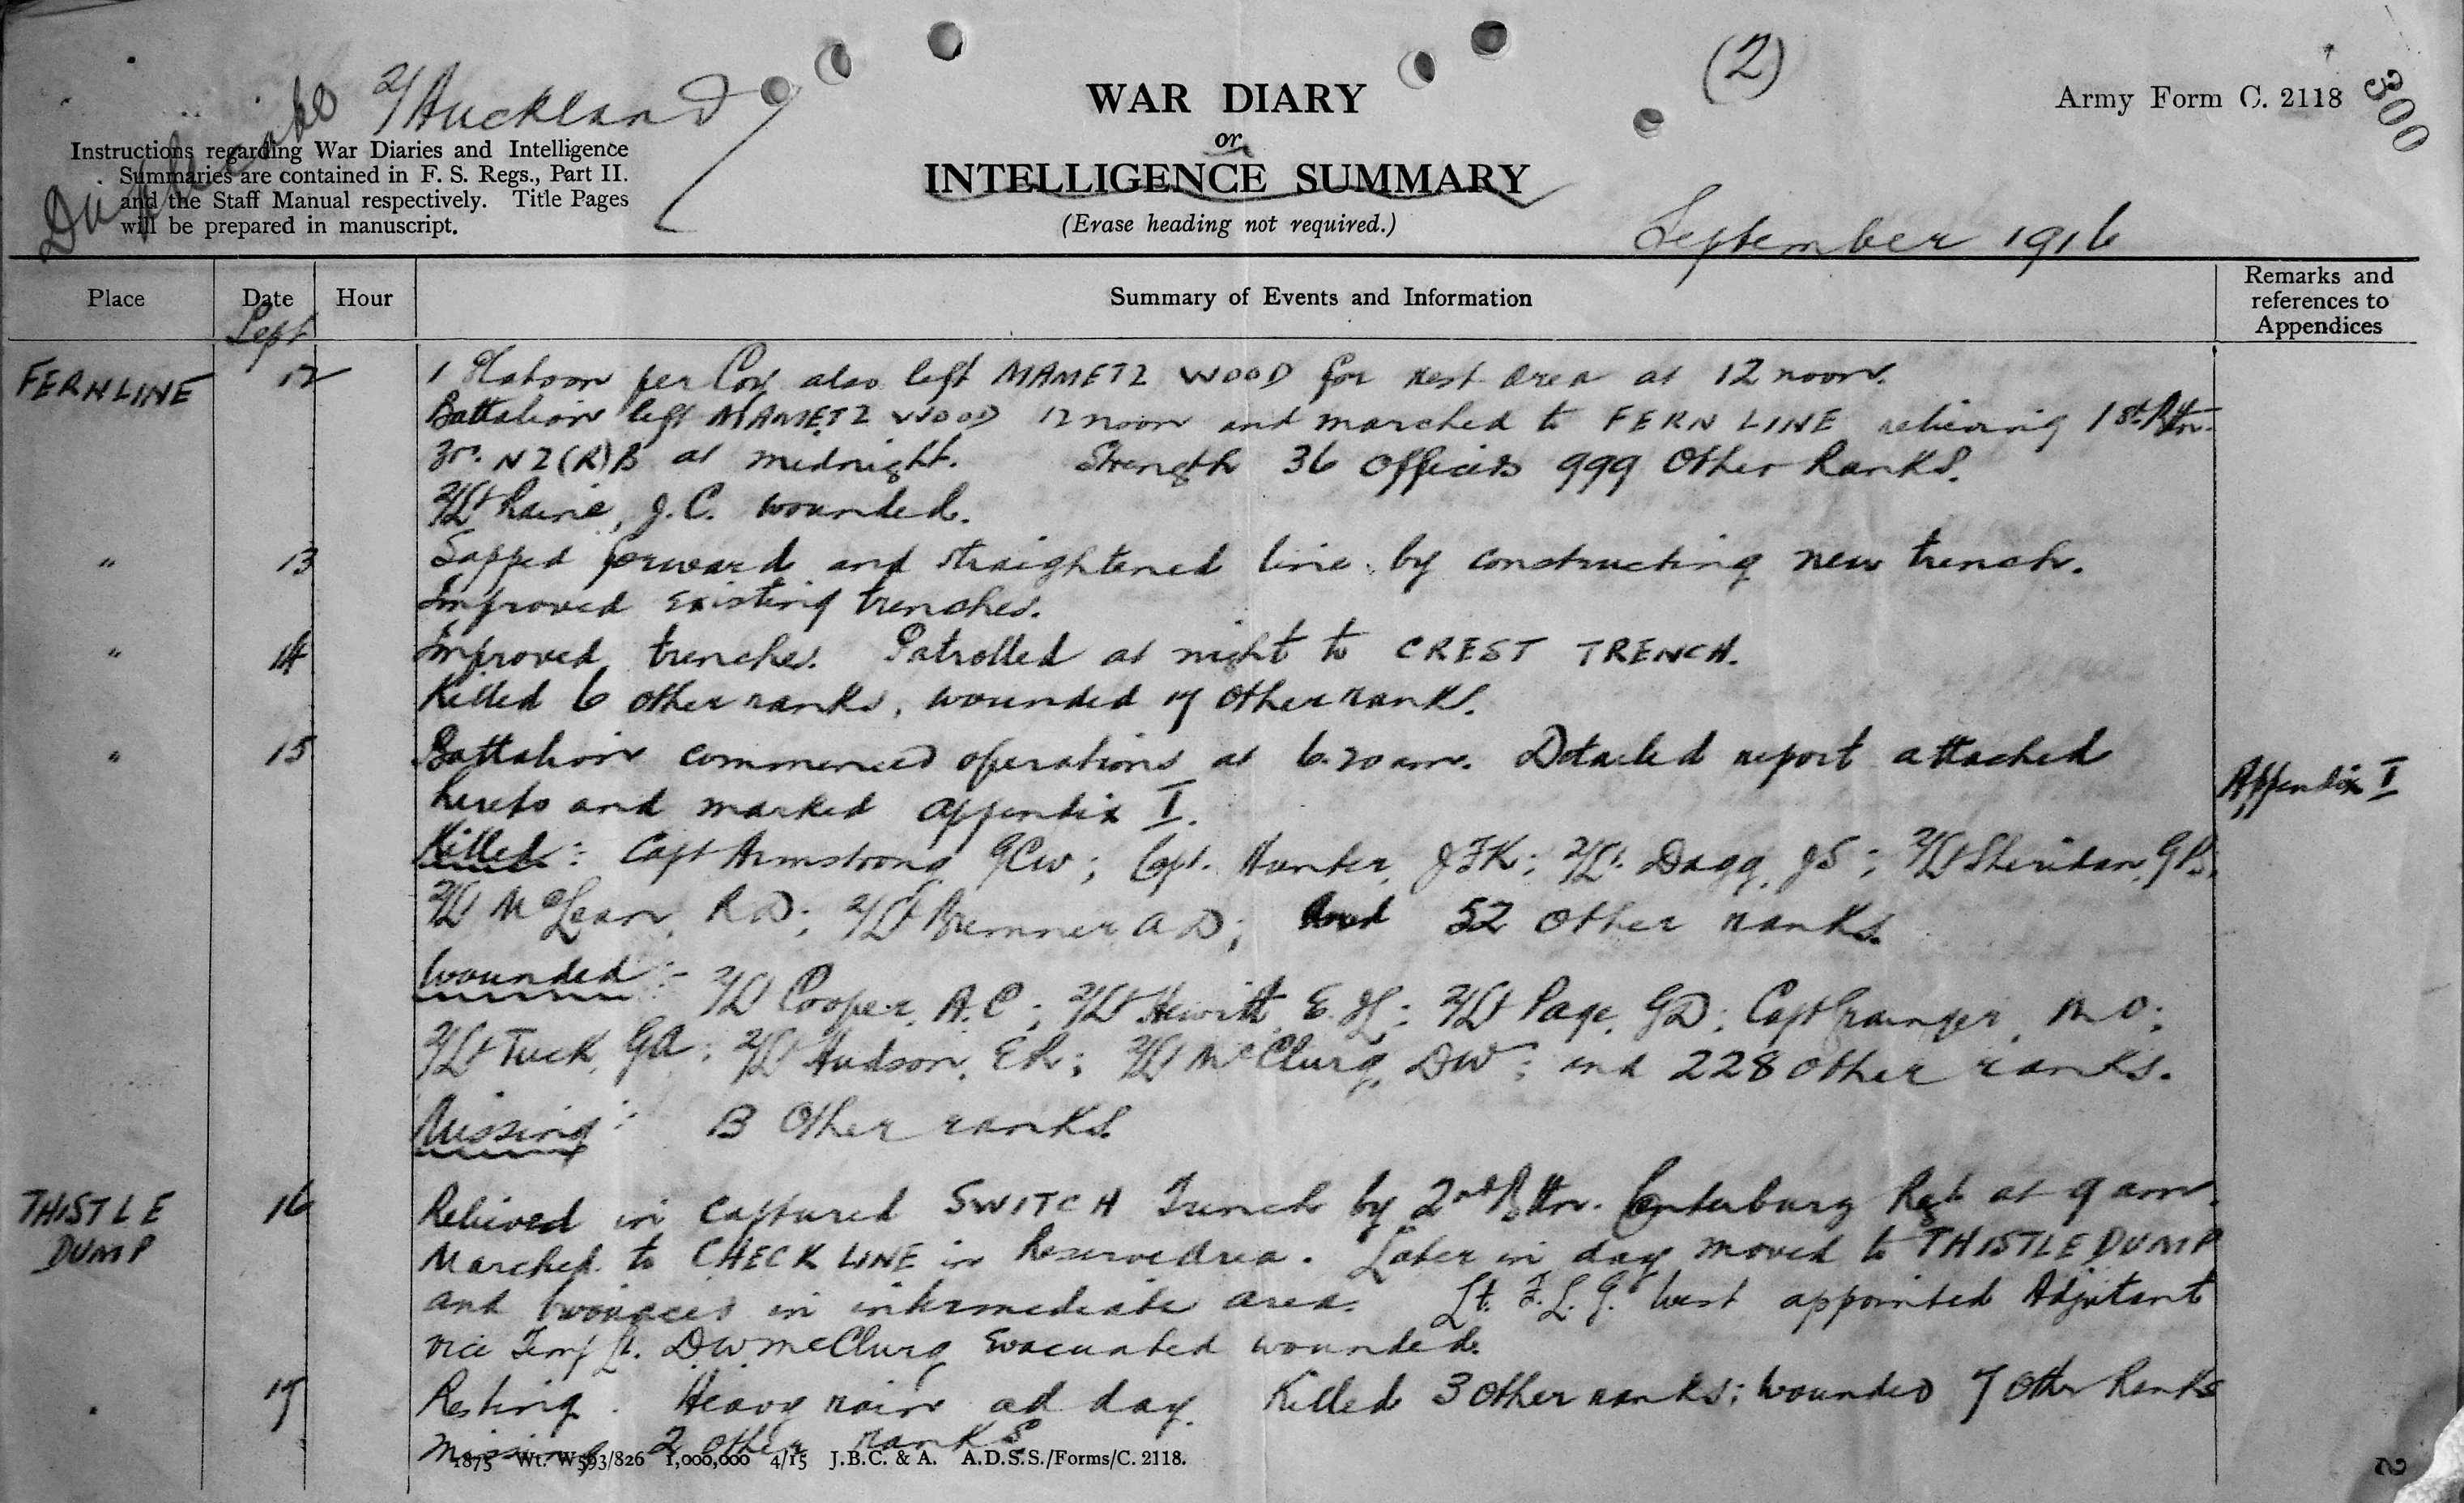 Duplicate
2/Auckland
(2)
300
WAR DIARY
or
INTELLIGENCE SUMMARY
(Erase heading not required.)
Army Form C. 2118
Instructions regarding War Diaries and Intelligence
Summaries are contained in F. S. Regs., Part II.
and the Staff Manual respectively. Title Pages
will be prepared in manuscript.
September 1916
Place Date Hour Summary of Events and Information Remarks and references to Appendices
Sept
FERN LINE 12 1 Platoon per Coy also left MAMETZ WOOD for rest area at 12 noon.
Battalion left MAMETZ WOOD 12 noon and marched to FERN LINE relieving 1st Bttn.
3rd. NZ(R)B at midnight. Strength 36 Officers 999 Other Ranks.
2/Lt Raine, J.C. wounded.
" 13 Sapped forward and straightened line by constructing new trench.
Improved existing trenches.
" 14 Improved trenches. Patrolled at night to CREST TRENCH.
Killed 6 other ranks, wounded other ranks.
" 15 Battalion commenced operations at 6.20 am. Detailed report attached
hereto and marked Appendix I. Appendix I
Killed: Capt Armstrong, GCW; Capt. Hunter, JFK; 2/Lt. Dagg, JS; 2/Lt Sheridan,
2/Lt McLean, RD; 2/Lt Bremner AD; And 52 Other ranks.
Wounded:- 2/Lt Cooper, A.C; 2/Lt Hewitt, E.H; 2/Lt Page, GD; Capt Grainger,
2/Lt Tuck, GA; 2/Lt Hudson, ER; 2/Lt McClurg, DW; and 228 other ranks.
Missing: 13 Other ranks.
THISTLE DUMP 16 Relieved in captured SWITCH Trench by 2nd Bttn. Canterbury Regt at 9 am.
Marched to CHECK LINE in Reserve Area. Later in day moved to THISTLE DUMP
and bivouaced in intermediate area. Lt. F.L.G. West appointed Adjutant
vice Temp Lt. D.W. McClurg Evacuated wounded.
" 17 Resting. Heavy rain all day. Killed 3 other ranks; wounded 7 Other Ranks
Missing 2 other ranks.
1875 Wt. W593/826 1,000,000 4/15 J.B.C. & A. A.D.S.S./Forms/C. 2118.
2